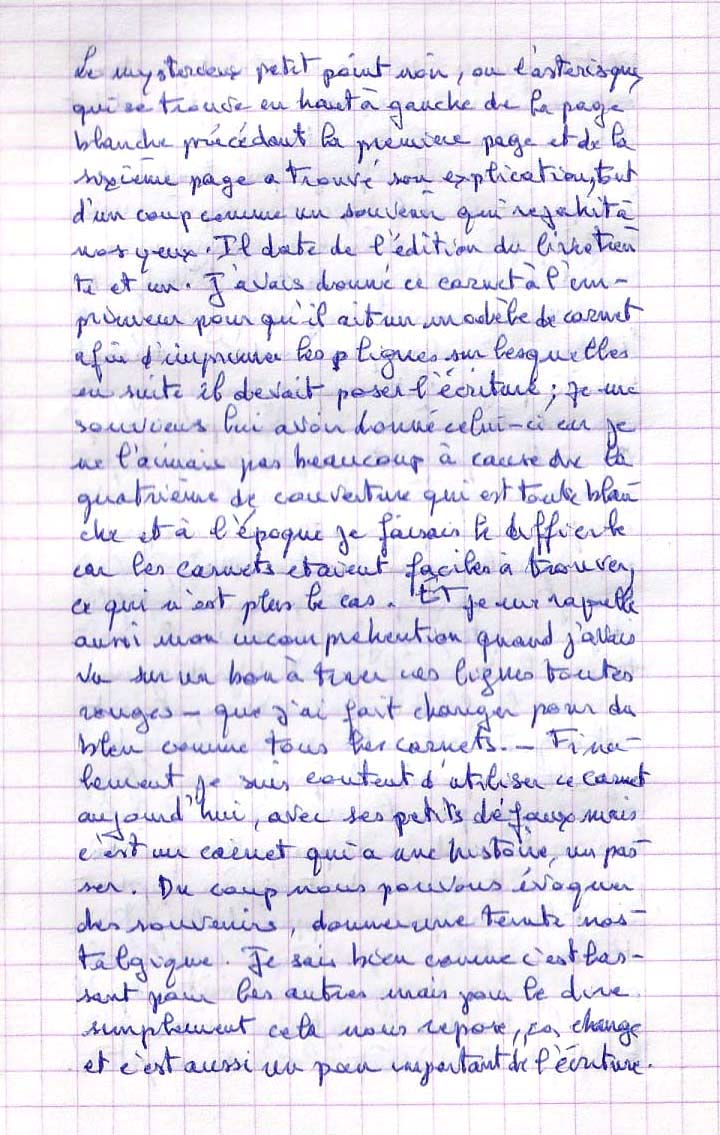 Le mysterieux petit point noir, ou l'asterisque,
qui se trouve en haut à gauche de la page
blanche précédant la première page et de la
sixième page a trouvé son explication, tout
d'un coup comme un souvenir qui rejaillit à
nos yeux. Il date de l'édition du livre tren
te et un. J'avais donné ce carnet à l'im-
primeur pour qu'il ait un modèle de carnet
afin d'imprimer les lignes sur lesquelles
en suite il devait poser l'écriture ; je me
souviens lui avoir donné celui-ci car je
ne l'aimais pas beaucoup à cause de la
quatrième de couverture qui est toute blan
che et à l'époque je faisais le difficile
car les carnets etaient faciles à trouver,
ce qui n'est plus le cas. Et je me rappelle
aussi mon incomprehention quand j'avais
vu sur un bon à tirer ces lignes toutes
rouges - que j'ai fait changer pour du
bleu comme tous les carnets. - Fina-
lement je suis content d'utiliser ce carnet
aujourd'hui, avec ses petits défauts mais
c'est un carnet qui a une histoire, un pas
ser. Du coup nous pouvons évoquer
des souvenirs, donner une teinte nos-
talgique. Je sais bien comme c'est las-
sant pour les autres mais pour le dire
simplement cela nous repose, ça change
et c'est aussi un peu important de l'écriture.